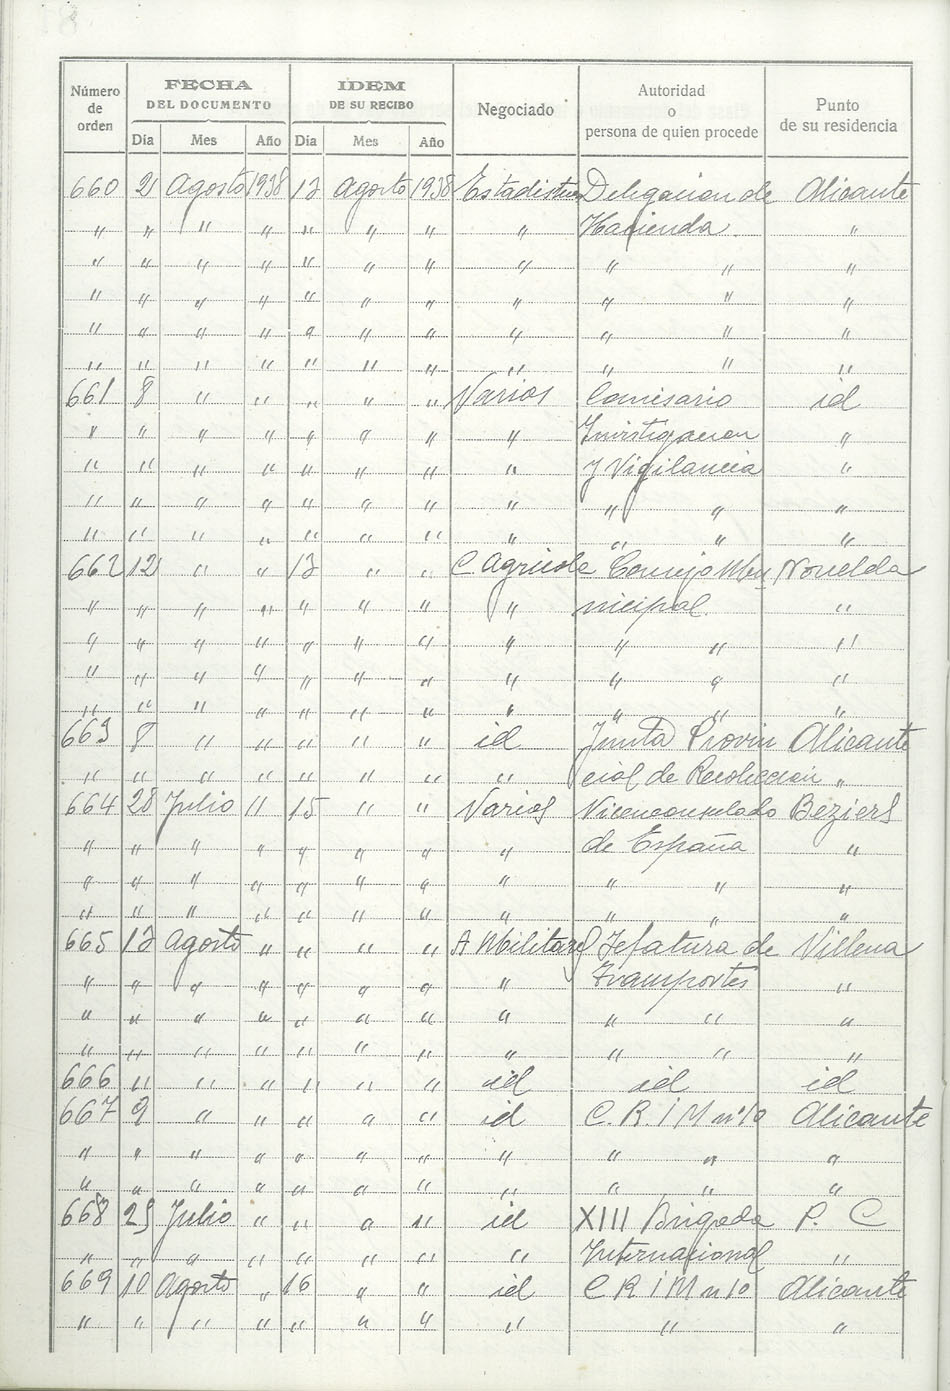 Número de orden FECHA DEL DOCUMENTO IDEM DE SU RECIBO Negociado Autoridad o persona de quien procede Punto de su residencia
Día Mes Año Día Mes Año
660 2 Agosto 1938 12 Agosto 1938 Estadistica Delegacion de Alicante
" " " " " " " " Hacienda "
" " " " " " " " " " "
" " " " " " " " " " "
" " " " " " " " " " "
" " " " " " " " " " "
661 8 " " " " " Varios Comisario id
" " " " " " " " Investigacion "
" " " " " " " " y Vigilancia "
" " " " " " " " " " "
" " " " " " " " " " "
662 12 " " 13 " " C. Agricola Consejo Mu Novelda
" " " " " " " " nicipal. "
" " " " " " " " " " "
" " " " " " " " " " "
" " " " " " " " " " "
663 8 " " " " " id Junta Provin Alicante
" " " " " " " " cial de Recoleccion "
664 28 Julio " 15 " " Varios Viceconsulado Beziers
" " " " " " " " de España "
" " " " " " " " " " "
" " " " " " " " " " "
665 12 Agosto " " " " A Militares Jefatura de Villena
" " " " " " " " Transportes "
" " " " " " " " " " "
" " " " " " " " " " "
666 " " " " " " id id id
667 9 " " " " " id C. R. I M nº 10 Alicante
" " " " " " " " " " "
" " " " " " " " " " "
668 25 Julio " " " " id XIII Brigada P. C
" " " " " " " " Internacional "
669 10 Agosto " 16 " " id C R I M nº 10 Alicante
" " " " " " " " " "